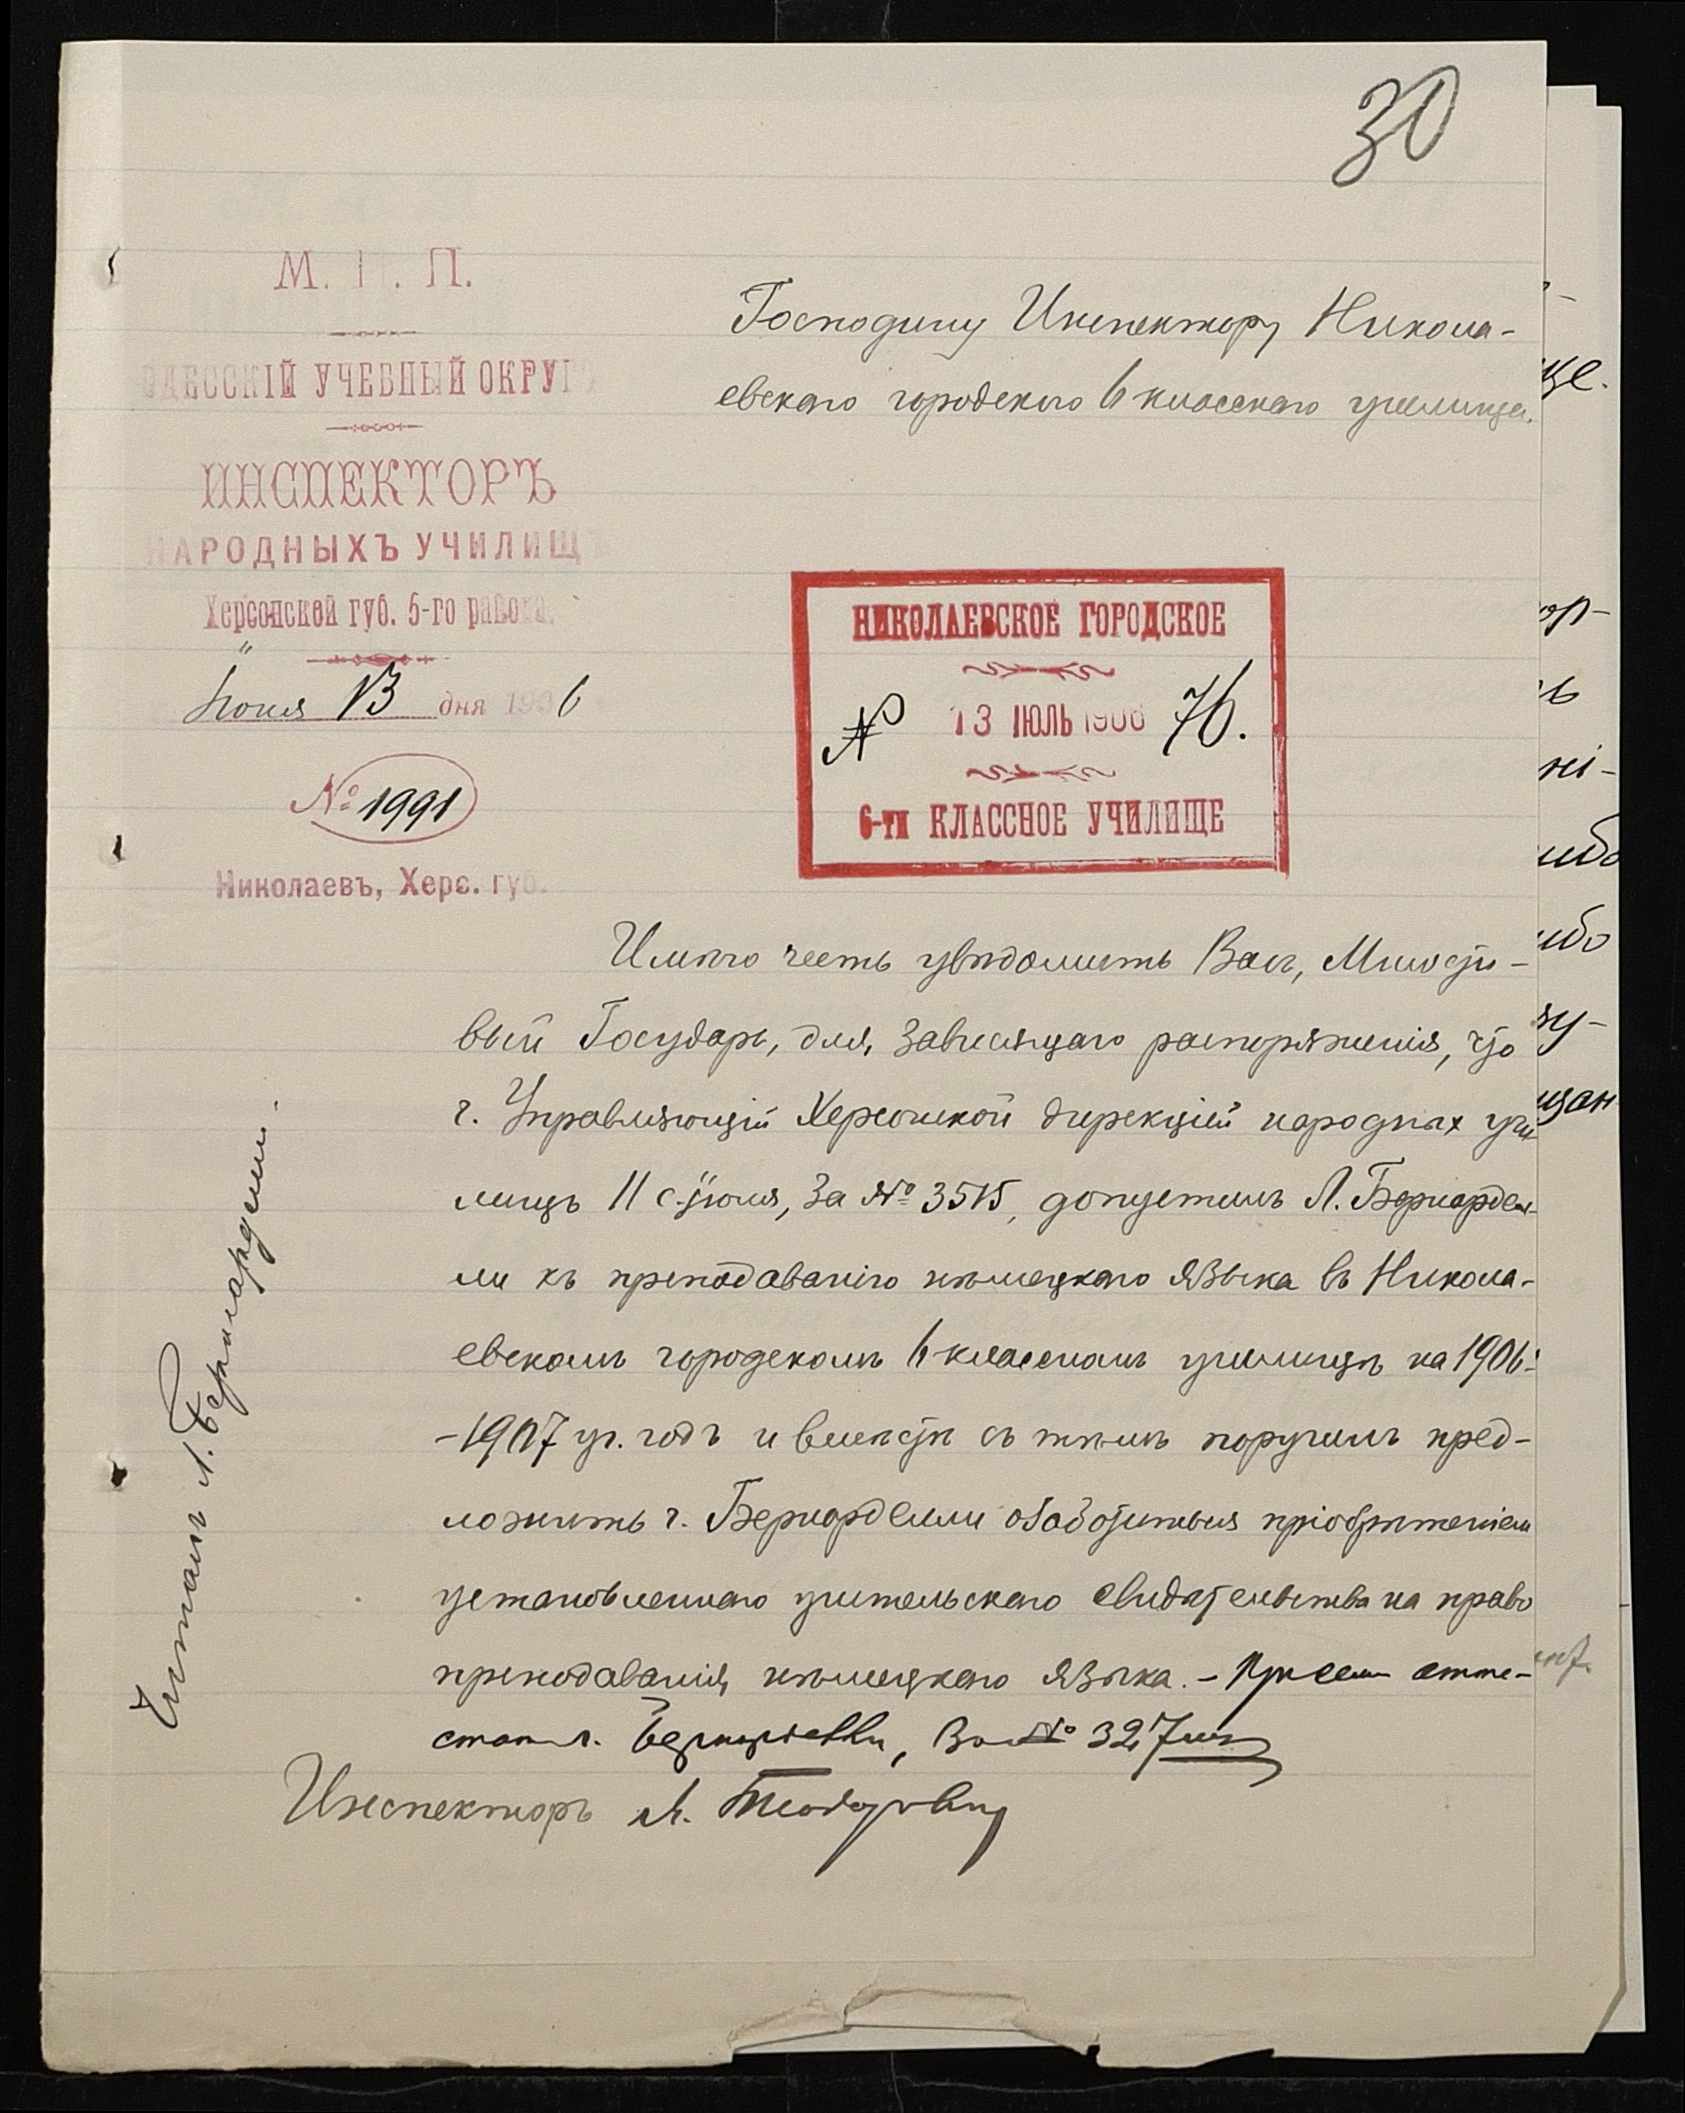 30
М. Н. П.
ОДЕССКІЙ УЧЕБНЫЙ ОКРУГЪ
ИНСПЕКТОРЪ
НАРОДНЫХЪ УЧИЛИЩЪ
Херсонской губ. 5-го района.
Іюля 13 дня 1906
№ 1991
Николаевъ, Херс. губ.
Господину Инспектору Никола-
евскаго городского 6 класснаго училища.
НИКОЛАЕВСКОЕ ГОРОДСКОЕ
№ 13 ІЮЛЬ 1906 76.
6-ти КЛАССНОЕ УЧИЛИЩЕ
Имѣю честь увѣдомить Васъ, Милости-
вый Государь, для зависящаго распоряженія, что
г. Управляющій Херсонской дирекціей народных учи
лищъ 11 с. іюля, за № 3515, допустилъ Л. Бернардел-
ли къ преподаванію нѣмецкаго языка въ Никола-
евскомъ городскомъ 6 классномъ училищѣ на 1906-
-1907 уч. годъ и вмѣстѣ съ тѣмъ поручилъ пред-
ложить г. Бернарделли озаботиться пріобрѣтеніем
установленнаго учительскаго свидѣтельства на право
преподаванія нѣмецкаго языка. - При семъ атте-
стат г. Бернарделли, за № 327
Инспекторъ А.
Читалъ Л. Бернарделли.
ще.
ор-
ь
ні-
ибо
ибо
зу-
щан